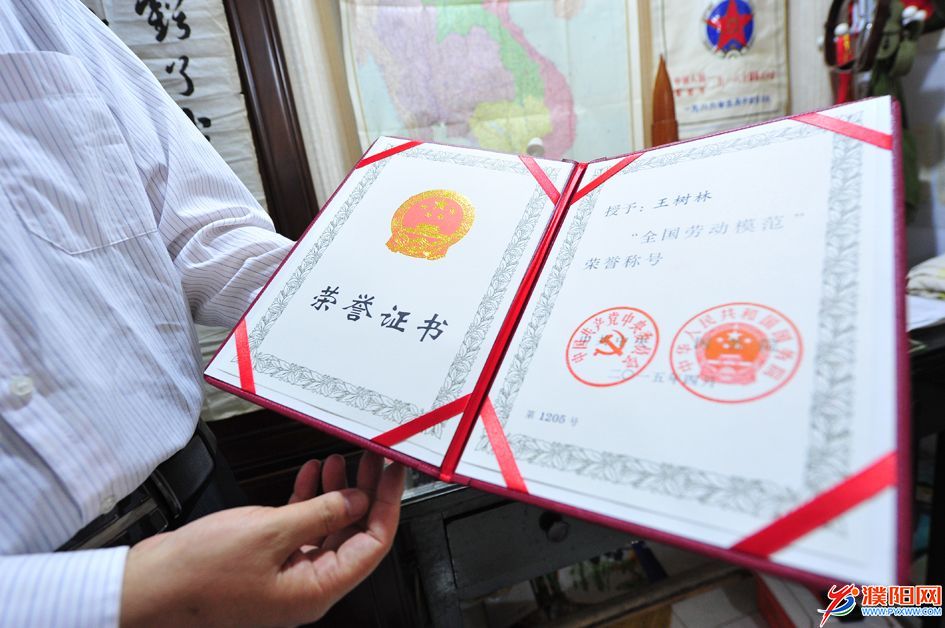 荣誉证书
授予：王树林
“全国劳动模范”
荣誉称号
中国共产党中央委员会
中华人民共和国国务院
二〇一五年四月
第 1205 号
濮阳网
WWW.PYXWW.COM